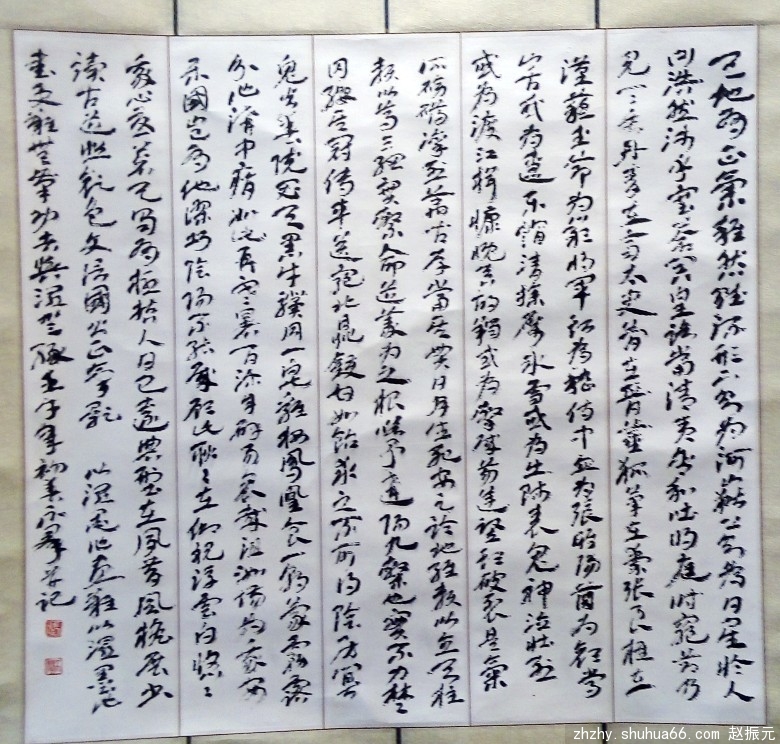 天地有正氣雜然賦流形下則為河嶽上則為日星於人
曰浩然沛乎塞蒼冥皇路當清夷含和吐明庭時窮節乃
見一一垂丹青在齊太史簡在晉董狐筆在秦張良椎在
漢蘇武節為嚴將軍頭為嵇侍中血為張睢陽齒為顏常
山舌或為遼東帽清操厲冰雪或為出師表鬼神泣壯烈
或為渡江楫慷慨吞胡羯或為擊賊笏逆豎頭破裂是氣
所磅礴凜烈萬古存當其貫日月生死安足論地維賴以立天柱
賴以尊三綱實繫命道義為之根嗟予遘陽九隸也實不力楚
囚纓其冠傳車送窮北鼎鑊甘如飴求之不可得陰房闃
鬼火春院閟天黑牛驥同一皂雞棲鳳凰食一朝蒙霧露
分作溝中瘠如此再寒暑百沴自辟易嗟哉沮洳場為我安
樂國豈有他繆巧陰陽不能賊顧此耿耿在仰視浮雲白悠悠
我心悲蒼天曷有極哲人日已遠典型在夙昔風檐展書
讀古道照顏色文信國公正氣歌
壬子年初
zhzhy.shuhua66.com 赵振元